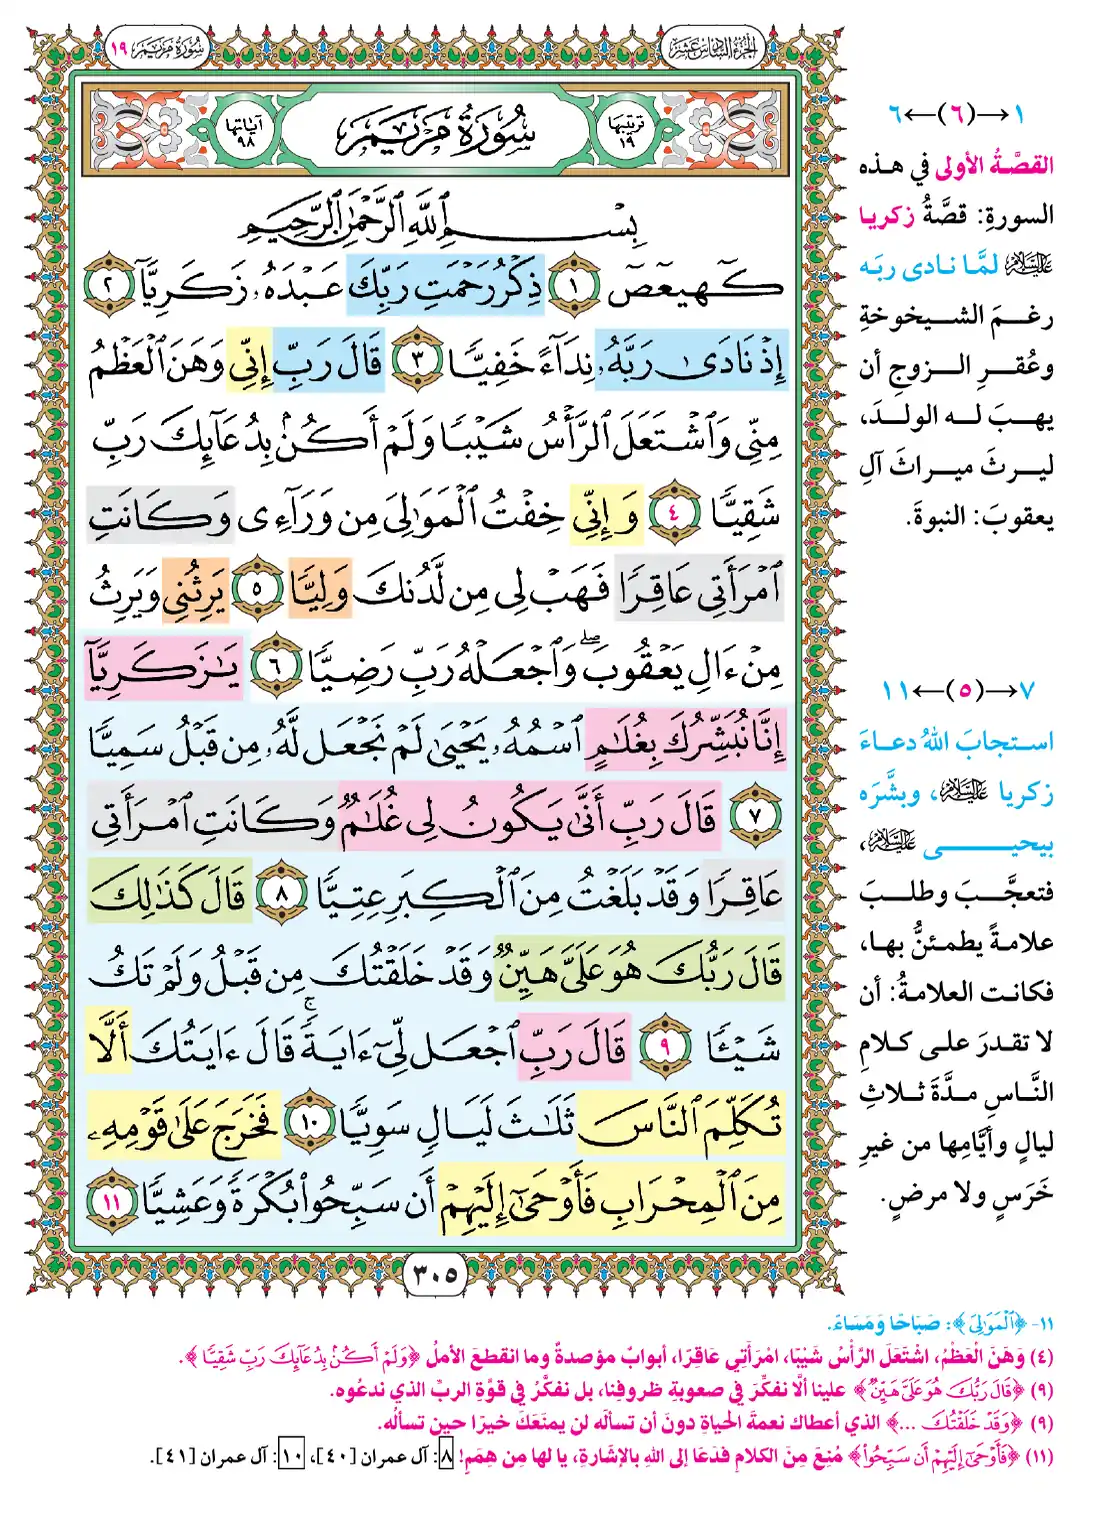 الجزء السادس عشر
سورة مريم ١٩
ترتيبها ١٩
سُورَةُ مَرْيَمَ
آياتها ٩٨
بِسْمِ ٱللَّهِ ٱلرَّحْمَٰنِ ٱلرَّحِيمِ
كٓهيعٓصٓ ١ ذِكْرُ رَحْمَتِ رَبِّكَ عَبْدَهُۥ زَكَرِيَّآ ٢
إِذْ نَادَىٰ رَبَّهُۥ نِدَآءً خَفِيًّا ٣ قَالَ رَبِّ إِنِّى وَهَنَ ٱلْعَظْمُ
مِنِّى وَٱشْتَعَلَ ٱلرَّأْسُ شَيْبًا وَلَمْ أَكُنۢ بِدُعَآئِكَ رَبِّ
شَقِيًّا ٤ وَإِنِّى خِفْتُ ٱلْمَوَٰلِىَ مِن وَرَآءِى وَكَانَتِ
ٱمْرَأَتِى عَاقِرًا فَهَبْ لِى مِن لَّدُنكَ وَلِيًّا ٥ يَرِثُنِى وَيَرِثُ
مِنْ ءَالِ يَعْقُوبَ ۖ وَٱجْعَلْهُ رَبِّ رَضِيًّا ٦ يَٰزَكَرِيَّآ
إِنَّا نُبَشِّرُكَ بِغُلَٰمٍ ٱسْمُهُۥ يَحْيَىٰ لَمْ نَجْعَل لَّهُۥ مِن قَبْلُ سَمِيًّا
٧ قَالَ رَبِّ أَنَّىٰ يَكُونُ لِى غُلَٰمٌ وَكَانَتِ ٱمْرَأَتِى
عَاقِرًا وَقَدْ بَلَغْتُ مِنَ ٱلْكِبَرِ عِتِيًّا ٨ قَالَ كَذَٰلِكَ
قَالَ رَبُّكَ هُوَ عَلَىَّ هَيِّنٌ وَقَدْ خَلَقْتُكَ مِن قَبْلُ وَلَمْ تَكُ
شَيْـًٔا ٩ قَالَ رَبِّ ٱجْعَل لِّىٓ ءَايَةً ۚ قَالَ ءَايَتُكَ أَلَّا
تُكَلِّمَ ٱلنَّاسَ ثَلَٰثَ لَيَالٍ سَوِيًّا ١٠ فَخَرَجَ عَلَىٰ قَوْمِهِۦ
مِنَ ٱلْمِحْرَابِ فَأَوْحَىٰٓ إِلَيْهِمْ أَن سَبِّحُوا۟ بُكْرَةً وَعَشِيًّا ١١
٣٠٥
١→(٦)←٦
القصَّةُ الأولى في هذه
السورةِ: قصَّةُ زكريا
عليه السلام لمَّا نادى ربَه
رغمَ الشيخوخةِ
وعُقرِ الزوجِ أن
يهبَ له الولدَ،
ليرثَ ميراثَ آلِ
يعقوبَ: النبوةَ.
٧→(٥)←١١
استجابَ اللهُ دعاءَ
زكريا عليه السلام، وبشَّرَه
بيحيى عليه السلام،
فتعجَّبَ وطلبَ
علامةً يطمئنُّ بها،
فكانت العلامةُ: أن
لا تقدرَ على كلامِ
النَّاسِ مدَّةَ ثلاثِ
ليالٍ وأيَّامِها من غيرِ
خَرَسٍ ولا مرضٍ.
١١- ﴿ٱلْمَوَٰلِىَ﴾: صَبَاحًا وَمَسَاءً.
(٤) وَهَنَ الْعَظْمُ، اشْتَعَلَ الرَّأْسُ شَيْبًا، امْرَأَتِي عَاقِرًا، أبوابٌ مؤصدةٌ وما انقطعَ الأملُ ﴿وَلَمْ أَكُنۢ بِدُعَآئِكَ رَبِّ شَقِيًّا﴾.
(٩) ﴿قَالَ رَبُّكَ هُوَ عَلَىَّ هَيِّنٌ﴾ علينا ألَّا نفكِّرَ في صعوبةِ ظروفِنا، بل نفكِّرُ في قوَّةِ الربِّ الذي ندعُوه.
(٩) ﴿وَقَدْ خَلَقْتُكَ ...﴾ الذي أعطاك نعمةَ الحياةِ دونَ أن تسألَه لن يمنَعَكَ خيرًا حين تسألُه.
(١١) ﴿فَأَوْحَىٰٓ إِلَيْهِمْ أَن سَبِّحُوا۟﴾ مُنِعَ مِنَ الكلامِ فدَعَا إلى اللهِ بالإشارةِ، يا لها مِن هِمَمٍ! ٨: آل عمران [٤٠]، ١٠: آل عمران [٤١].